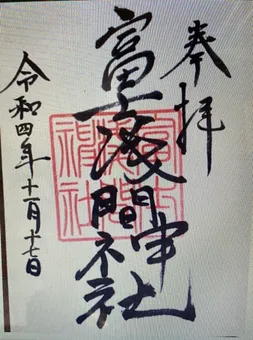 奉拝
富士浅間神社
令和四年十一月十七日